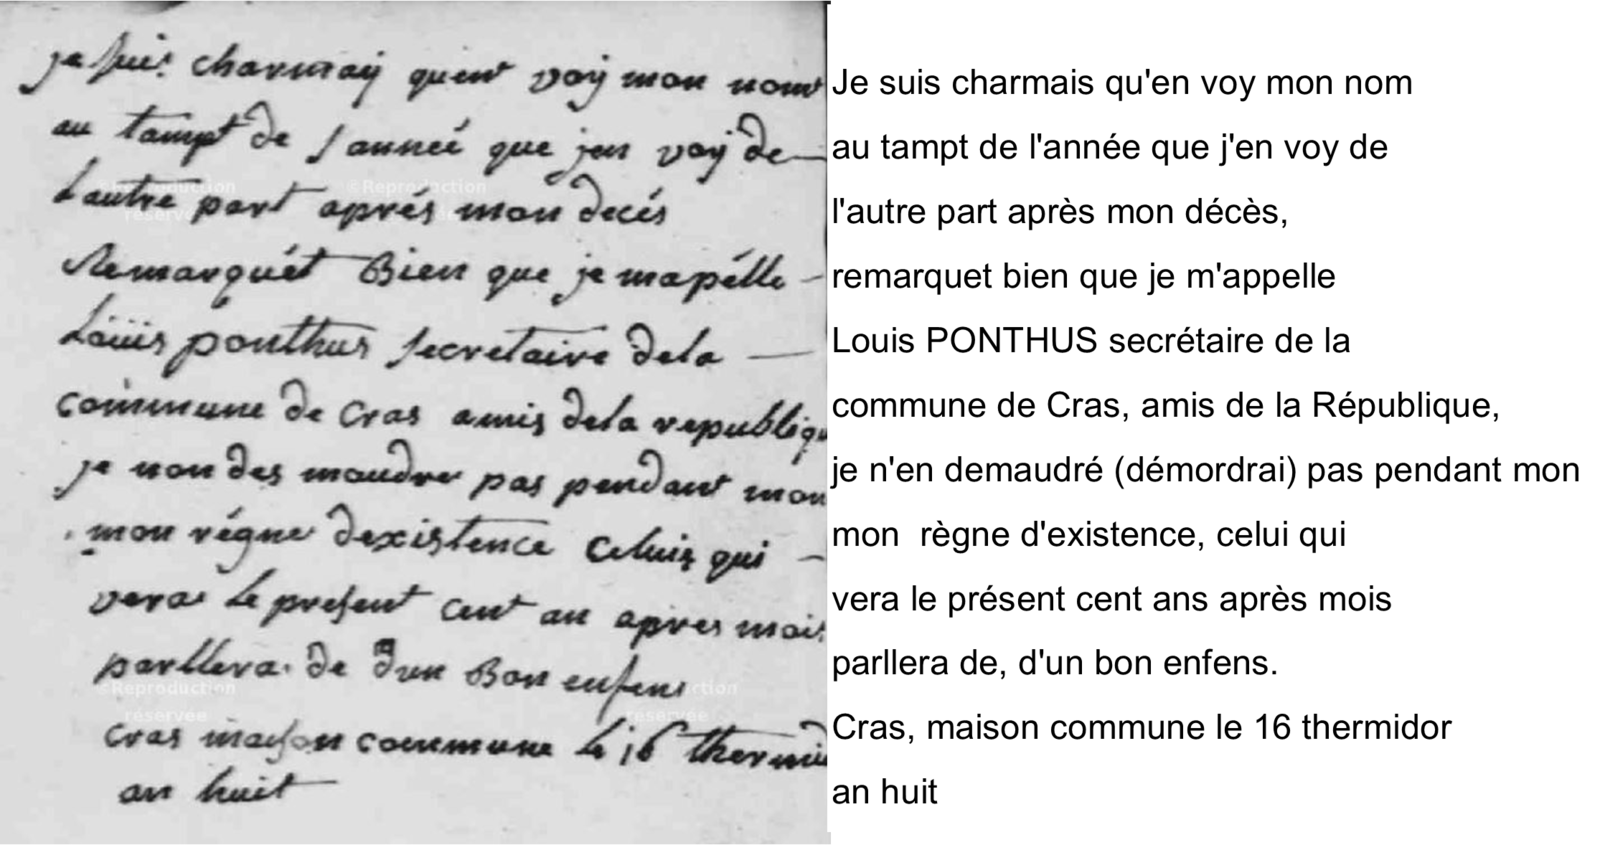 je suis charmaÿ quent voÿ mon nomt
au tampt de l'année que jen voÿ de
Lautre part aprés mon decés
Remarquét Bien que je mapélle
Loüis ponthus secretaire dela
commune de Cras amis dela republiqu
je non des maudre pas pendant mon
mon régne dexistence Celuis qui
vera le present Cent an apres mois
parllera de d'un Bon enfens
Cras maison commune le 16 thermid
an huit
Je suis charmais qu'en voy mon nom
au tampt de l'année que j'en voy de
l'autre part après mon décès,
remarquet bien que je m'appelle
Louis PONTHUS secrétaire de la
commune de Cras, amis de la République,
je n'en demaudré (démordrai) pas pendant mon
mon  règne d'existence, celui qui
vera le présent cent ans après mois
parllera de, d'un bon enfens.
Cras, maison commune le 16 thermidor
an huit
©Reproduction
réservée
©Reproduction
©Reproduction
réservée
réservée